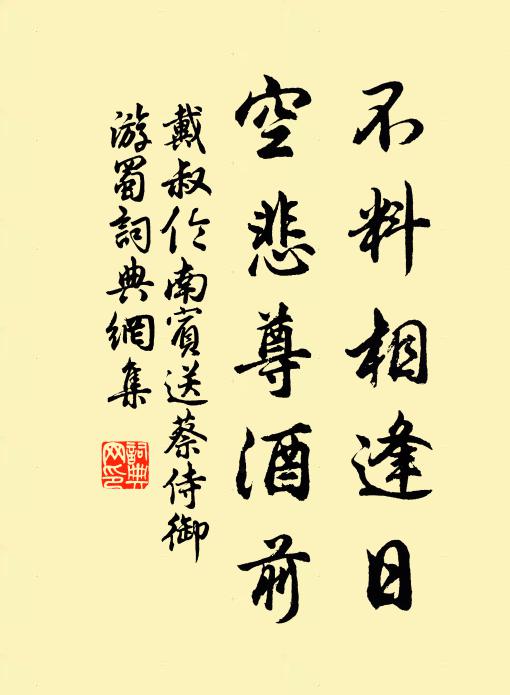 不料相逢日
空悲尊酒前
戴叔伦南宾送蔡侍御
游蜀詞典網集
詞典
网印